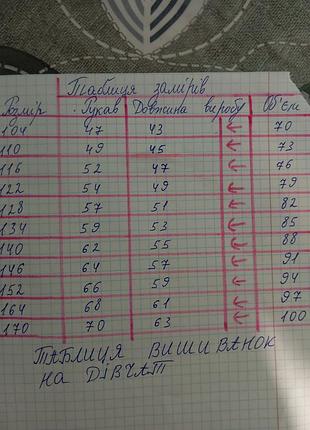 Таблиця замірів
Розмір Рукав Довжина виробу Об'єм
104 47 43 ← 70
110 49 45 ← 73
116 52 47 ← 76
122 54 49 ← 79
128 57 51 ← 82
134 59 53 ← 85
140 62 55 ← 88
146 64 57 ← 91
152 66 59 ← 94
164 68 61 ← 97
170 70 63 ← 100
ТАБЛИЦЯ ВИШИВАНОК
НА ДІВЧАТ